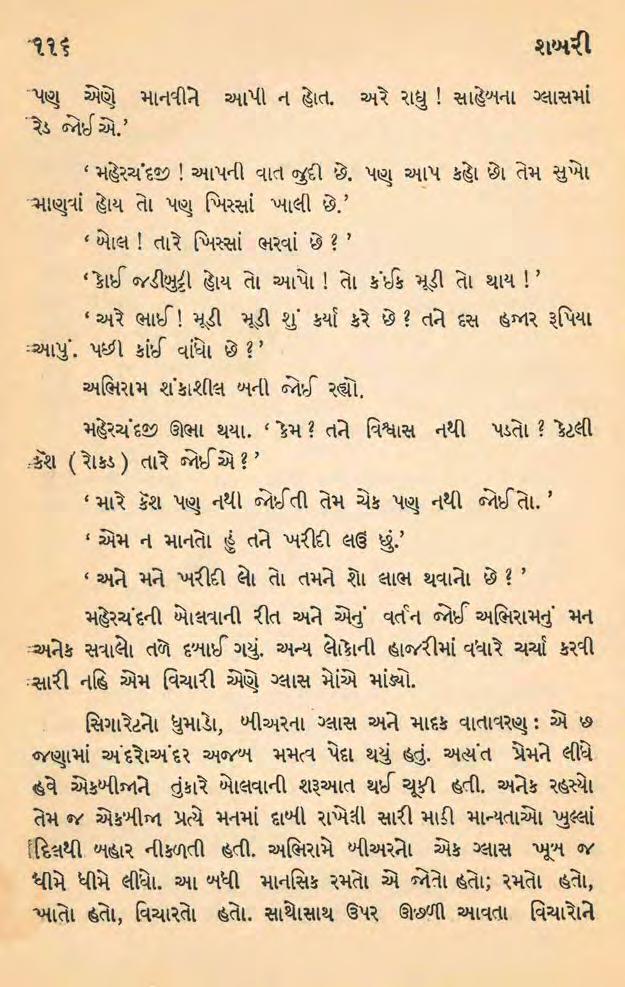 ૧૧૬ શબરી
પણ એણે માનવીને આપી ન હોત. અરે રાધુ ! સાહેબના ગ્લાસમાં
રેડ જોઈએ.’
‘ મહેરચંદજી ! આપની વાત જુદી છે. પણ આપ કહો છો તેમ સુખો
માણ્યાં હોય તો પણ ખિસ્સાં ખાલી છે.’
‘ બોલ ! તારે ખિસ્સાં ભરવાં છે ? ’
‘ કોઈ જડીબુટ્ટી હોય તો આપો ! તો કંઈક મૂડી તો થાય ! ’
‘ અરે ભાઈ ! મૂડી મૂડી શું કર્યા કરે છે ? તને દસ હજાર રૂપિયા
આપું. પછી કાંઈ વાંધો છે ? ’
અભિરામ શંકાશીલ બની જોઈ રહ્યો.
મહેરચંદજી ઊભા થયા. ‘ કેમ ? તને વિશ્વાસ નથી પડતો ? કેટલી
કૅશ ( રોકડ ) તારે જોઈએ ? ’
‘ મારે કૅશ પણ નથી જોઈતી તેમ ચેક પણ નથી જોઈતો. ’
‘ એમ ન માનતો હું તને ખરીદી લઉં છું.’
‘ અને મને ખરીદી લો તો તમને શો લાભ થવાનો છે ? ’
મહેરચંદની બોલવાની રીત અને એનું વર્તન જોઈ અભિરામનું મન
અનેક સવાલો તળે દબાઈ ગયું. અન્ય લોકોની હાજરીમાં વધારે ચર્ચા કરવી
સારી નહિ એમ વિચારી એણે ગ્લાસ મોંએ માંડ્યો.
સિગારેટનો ધુમાડો, બીઅરના ગ્લાસ અને માદક વાતાવરણ : એ છ
જણામાં અંદરોઅંદર અજબ મમત્વ પેદા થયું હતું. અત્યંત પ્રેમને લીધે
હવે એકબીજાને તુંકારે બોલવાની શરૂઆત થઈ ચૂકી હતી. અનેક રહસ્યો
તેમ જ એકબીજા પ્રત્યે મનમાં દાબી રાખેલી સારી માઠી માન્યતાઓ ખુલ્લાં
દિલથી બહાર નીકળતી હતી. અભિરામે બીઅરનો એક ગ્લાસ ખૂબ જ
ધીમે ધીમે લીધો. આ બધી માનસિક રમતો એ જોતો હતો; રમતો હતો,
ખાતો હતો, વિચારતો હતો. સાથોસાથ ઉપર ઊછળી આવતા વિચારોને